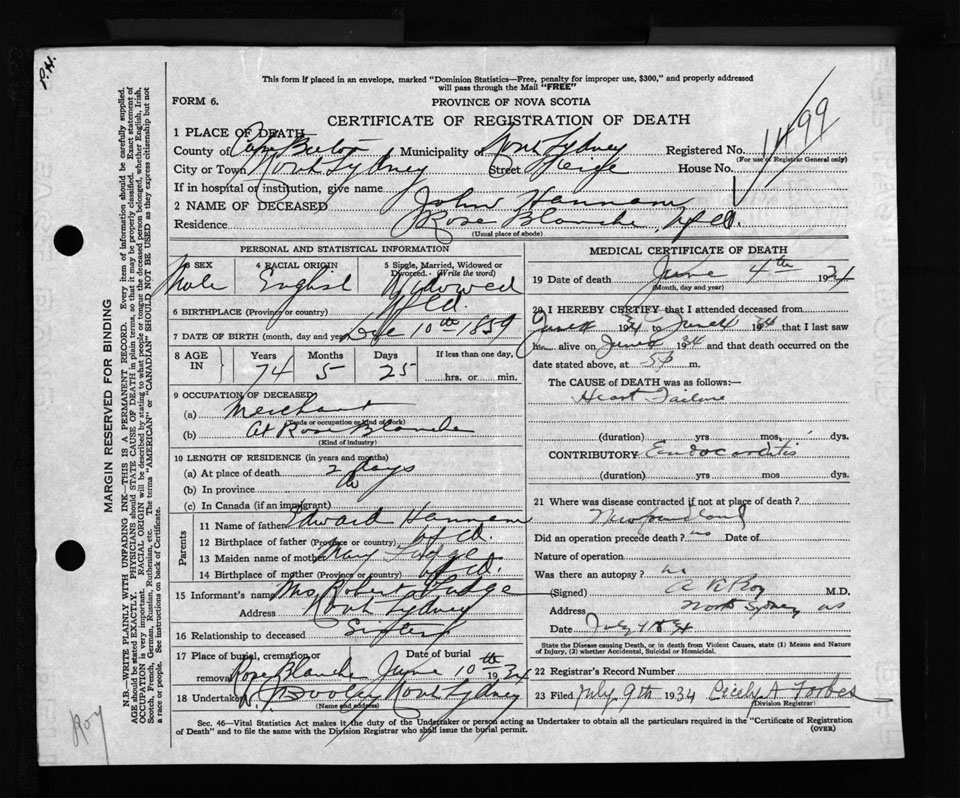 P.H.
This form if placed in an envelope, marked "Dominion Statistics—Free, penalty for improper use, $300," and properly addressed
will pass through the Mail "FREE"
FORM 6.
PROVINCE OF NOVA SCOTIA
CERTIFICATE OF REGISTRATION OF DEATH
1499
1 PLACE OF DEATH
County of Cape Breton Municipality of North Sydney Registered No.
(For use of Registrar General only)
City or Town North Sydney Street House No.
If in hospital or institution, give name
2 NAME OF DECEASED John Hannam
Residence Rose Blanche, Nfld.
(Usual place of abode)
PERSONAL AND STATISTICAL INFORMATION
3 SEX Male
4 RACIAL ORIGIN English
5 Single, Married, Widowed or Divorced. (Write the word) Widowed
6 BIRTHPLACE (Province or country) Nfld.
7 DATE OF BIRTH (month, day and year) 10th 1859
8 AGE IN Years 74 Months 5 Days 25 If less than one day, hrs. or min.
9 OCCUPATION OF DECEASED
(a) Merchant
(Trade or occupation or kind of work)
(b) At Rose Blanche
(Kind of industry)
10 LENGTH OF RESIDENCE (in years and months)
(a) At place of death 2 days
(b) In province
(c) In Canada (if an immigrant)
Parents
11 Name of father Edward Hannam
12 Birthplace of father (Province or country) Nfld.
13 Maiden name of mother Mary Fudge
14 Birthplace of mother (Province or country) Nfld.
15 Informant's name Mrs Robert Fudge
Address North Sydney
16 Relationship to deceased Sister
17 Place of burial, cremation or removal Rose Blanche Date of burial June 10th 1934
18 Undertaker Dooley North Sydney
(Name and address)
MEDICAL CERTIFICATE OF DEATH
19 Date of death June 4th 1934
(Month, day and year)
20 I HEREBY CERTIFY that I attended deceased from
June 1934 to June 4 1934 that I last saw
h alive on June 1934 and that death occurred on the
date stated above, at m.
The CAUSE of DEATH was as follows:—
Heart Failure
(duration) yrs mos. dys.
CONTRIBUTORY Endocarditis
(duration) yrs. mos. dys.
21 Where was disease contracted if not at place of death?
Newfoundland
Did an operation precede death? no Date of
Nature of operation
Was there an autopsy? no
(Signed) Roy M.D.
Address North Sydney NS
Date July 34
State the Disease causing Death, or in death from Violent Causes, state (1) Means and Nature
of Injury, (2) whether Accidental, Suicidal or Homicidal.
22 Registrar's Record Number
23 Filed July 9th 1934 Cecily A Forbes
(Division Registrar)
Sec. 46—Vital Statistics Act makes it the duty of the Undertaker or person acting as Undertaker to obtain all the particulars required in the "Certificate of Registration
of Death" and to file the same with the Division Registrar who shall issue the burial permit.
(OVER)
MARGIN RESERVED FOR BINDING
N.B.—WRITE PLAINLY WITH UNFADING INK—THIS IS A PERMANENT RECORD. Every item of information should be carefully supplied.
AGE should be stated EXACTLY. PHYSICIANS should STATE CAUSE OF DEATH in plain terms, so that it may be properly classified. Exact statement of
OCCUPATION is very important. RACIAL ORIGIN will be described by stating to what people or tongue the deceased person belonged, whether English, Irish,
Scotch, French, German, Russian, Ruthenian, etc. The terms "AMERICAN" or "CANADIAN" SHOULD NOT BE USED as they express citizenship but not
a race or people. See instructions on back of Certificate.
Roy